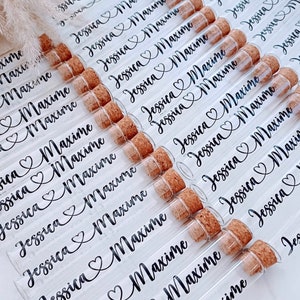 Jessica ♡ Maxime
Jessica ♡ Maxime
Jessica ♡ Maxime
Jessica ♡ Maxime
Jessica ♡ Maxime
Jessica ♡ Maxime
Jessica ♡ Maxime
Jessica ♡ Maxime
Jessica ♡ Maxime
Jessica ♡ Maxime
Jessica ♡ Maxime
Jessica ♡ Maxime
Jessica ♡ Maxime
Jessica ♡ Maxime
Jessica ♡ Maxime
Jessica ♡ Maxime